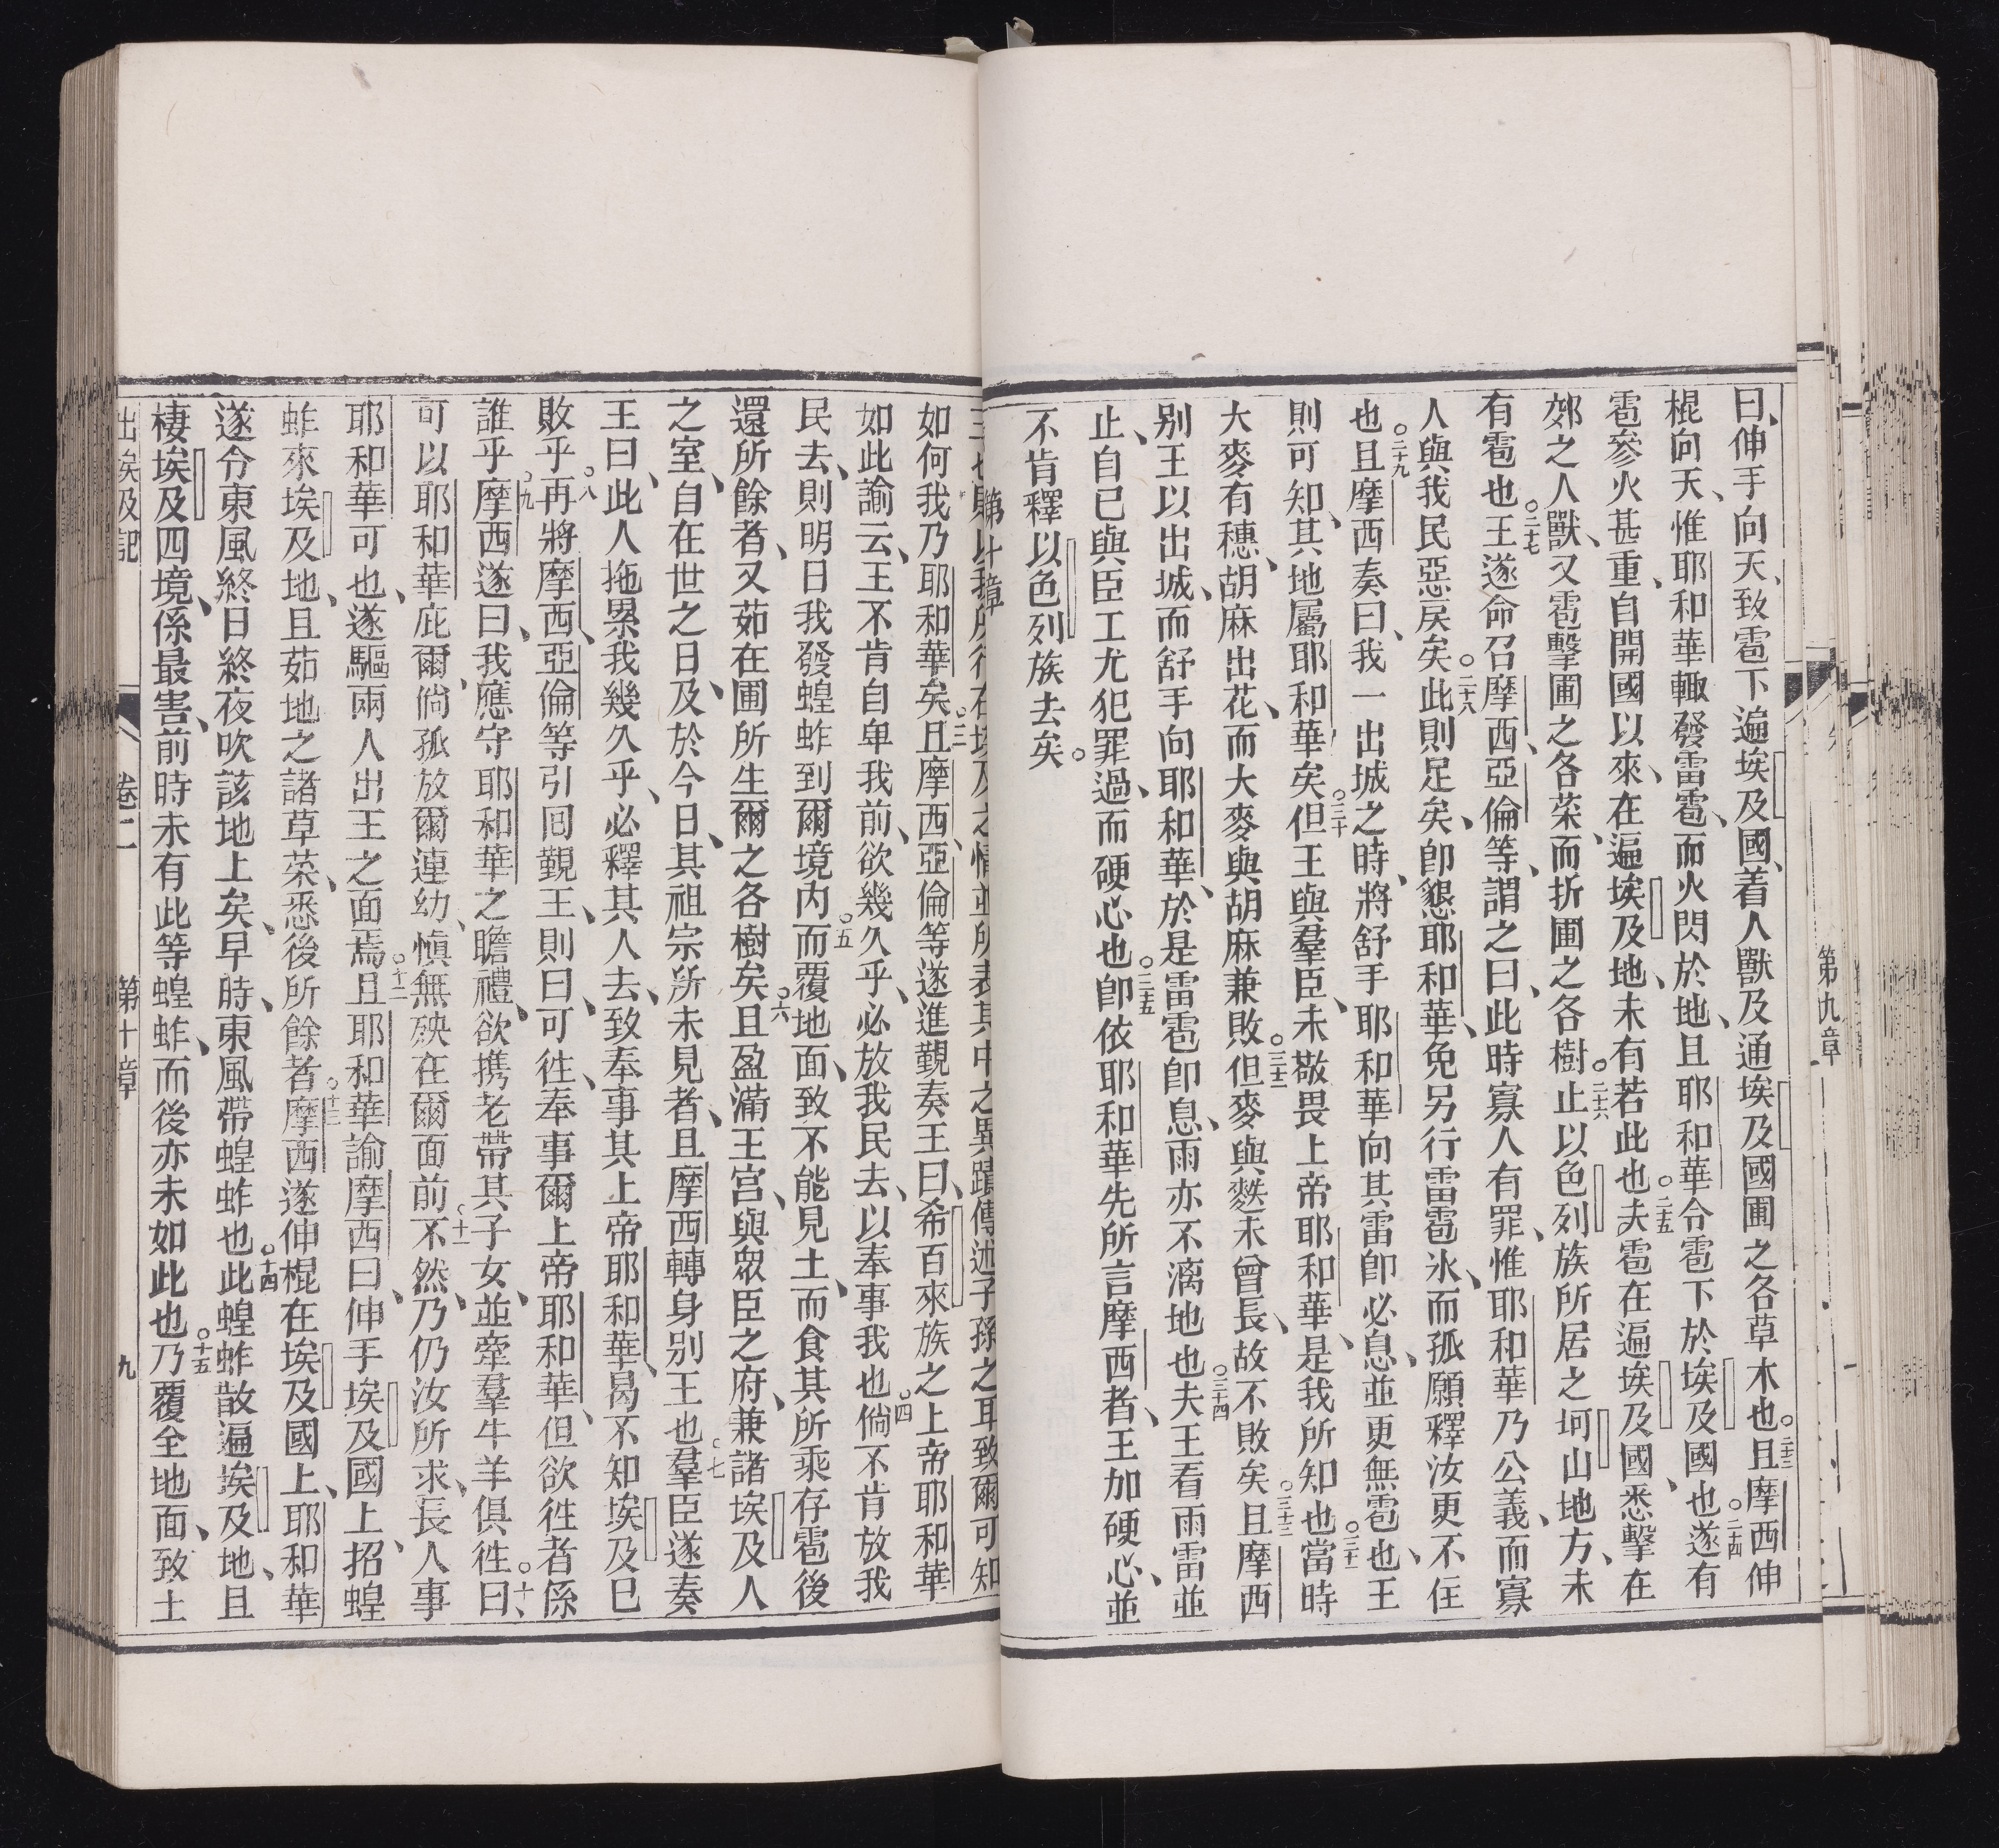 曰、伸手向天、致雹下遍埃及國、着人獸及通埃及國圃之各草木也○二十三且摩西伸
棍向天、惟耶和華輙發雷雹、而火閃於地、且耶和華令雹下於埃及國也○二十四遂有
雹參火甚重、自開國以來、在遍埃及地、未有若此也○二五夫雹在遍埃及國、悉擊在
郊之人獸、又雹擊圃之各菜、而折圃之各樹○二十六止以色列族所居之坷山地方、未
有雹也○二十七王遂命召摩西、亞倫等、謂之曰、此時寡人有罪、惟耶和華乃公義、而寡
人與我民惡戾矣○二十八此則足矣、卽懇耶和華、免另行雷雹氷、而孤願釋汝更不住
也○二十九且摩西奏曰、我一出城之時、將舒手耶和華向其雷卽必息、並更無雹也、王
則可知、其地屬耶和華矣○三十但王與羣臣、未敬畏上帝耶和華、是我所知也○三十一當時
大麥有穗、胡麻出花、而大麥與胡麻兼敗○三十二但麥與麰未曾長、故不敗矣○三十三且摩西
別王以出城、而舒手向耶和華、於是雷雹卽息、雨亦不漓地也○三十四夫王看雨雷並
止、自已與臣工尤犯罪過、而硬心也○三五卽依耶和華先所言摩西者、王加硬心、並
不肯釋以色列族去矣。
第九章
第十章
在埃及之情、並所表其中之異蹟、傳述子孫之耳、致爾可知
如何我乃耶和華矣○三且摩西、亞倫等遂進覲奏王曰、希百來族之上帝耶和華
如此諭云、王不肯自卑我前、欲幾久乎、必放我民去、以奉事我也○四倘不肯放我
民去、則明日我發蝗蚱到爾境内○五而覆地面、致不能見土、而食其所乘存雹後
還所餘者、又茹在圃所生爾之各樹矣○六且盈滿王宫、與眾臣之府、兼諸埃及人
之室、自在世之日、及於今日、其祖宗所未見者、且摩西轉身別王也○七羣臣遂奏
王曰、此人拖累我幾久乎、必釋其人去、致奉事其上帝耶和華、曷不知埃及巳
敗乎○八再將摩西、亞倫等引囘覲王、則曰、可徃、奉事爾上帝耶和華、但欲徃者係
誰乎○九摩西遂曰、我應守耶和華之瞻禮、欲携老帶其子女、並牽羣牛羊俱徃○十曰、
可以耶和華庇爾、倘孤放爾連幼、愼無殃在爾面前○十一不然、乃仍汝所求、長人事
耶和華可也、遂驅兩人出王之面焉○十二且耶和華諭摩西曰、伸手埃及國上、招蝗
蚱來埃及地、且茹地之諸草菜、悉後所餘者○十三摩西遂伸棍在埃及國上、耶和華
遂令東風終日終夜吹該地上矣、早時、東風帶蝗蚱也○十四此蝗蚱散遍埃及地、且
棲埃及四境、係最害、前時未有此等蝗蚱、而後亦未如此也○十五乃覆全地面、致土
出埃及記 卷二 第十章 九